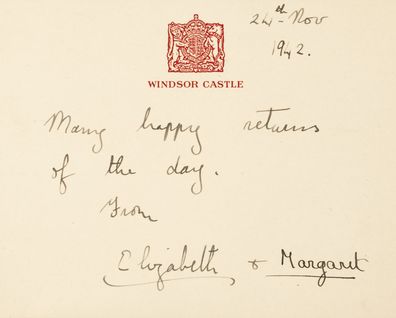 24th Nov
1942.
WINDSOR CASTLE
Many happy returns
of the day.
From
Elizabeth & Margaret